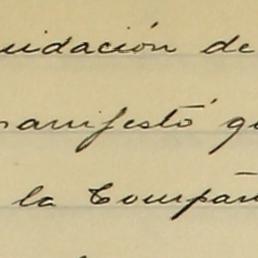 uidación de
manifestó qu
la Compañ